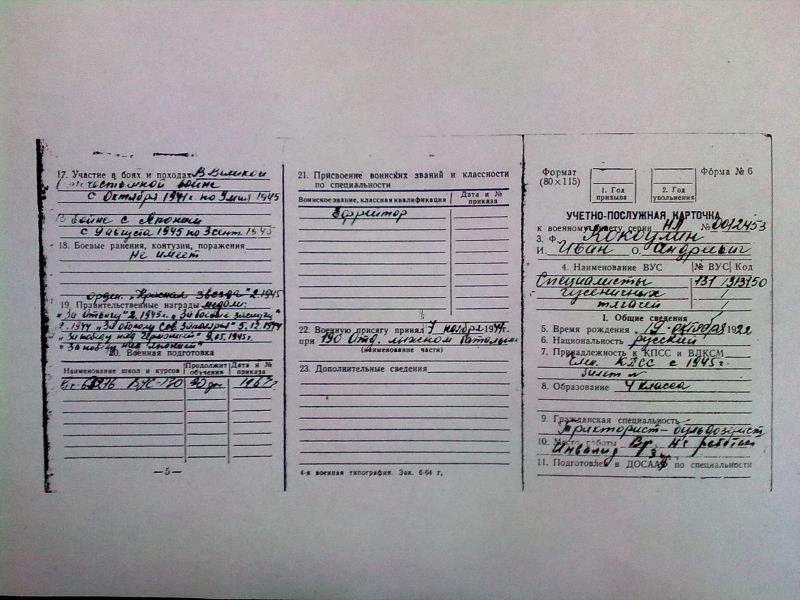 17. Участие в боях и походах В Великой
Отечественной войне
с Октября 1941 г по 9 мая 1945
В войне с Японией
с 9 августа 1945 по 3 сент. 1945
18. Боевые ранения, контузии, поражения
Не имеет
орден „Красная Звезда" 2.1945
19. Правительственные награды медали:
„За отвагу" 2.1945 г. „За боевые заслуги"
1944 „За оборону Сов. Заполярья" 5.12.1944
„За победу над Германией" 9.05.1945 г.
„За победу над Японией"
20. Военная подготовка
Наименование школ и курсов
Продолжит. обучения
Дата и № приказа
ВУС-170
1967 г
— 5 —
21. Присвоение воинских званий и классности
по специальности
Воинское звание, классная квалификация
Дата и № приказа
Ефрейтор
22. Военную присягу принял 7 ноября 1941 г.
при 190 Отд. лыжном батальоне
(наименование части)
23. Дополнительные сведения
4-я военная типография. Зак. 6-64 г,
Формат
(80×115)
1. Год
призыва
2. Год
увольнения
Форма № 6
УЧЕТНО-ПОСЛУЖНАЯ КАРТОЧКА
к военному билету серии НЛ № 0012453
3. Ф. Кокоулин
И. Иван О. Андреевич
4. Наименование ВУС
№ ВУС
Код
Специалисты 131
гусеничных
тягачей
I. Общие сведения
5. Время рождения 19 октября 1922
6. Национальность русский
7. Принадлежность к КПСС и ВЛКСМ
Член КПСС с 1945 г.
билет №
8. Образование 4 класса
9. Гражданская специальность
Тракторист-бульдозерист
10. Место работы Вр. не работает
Инвалид
11. Подготовлен в ДОСААФ по специальности